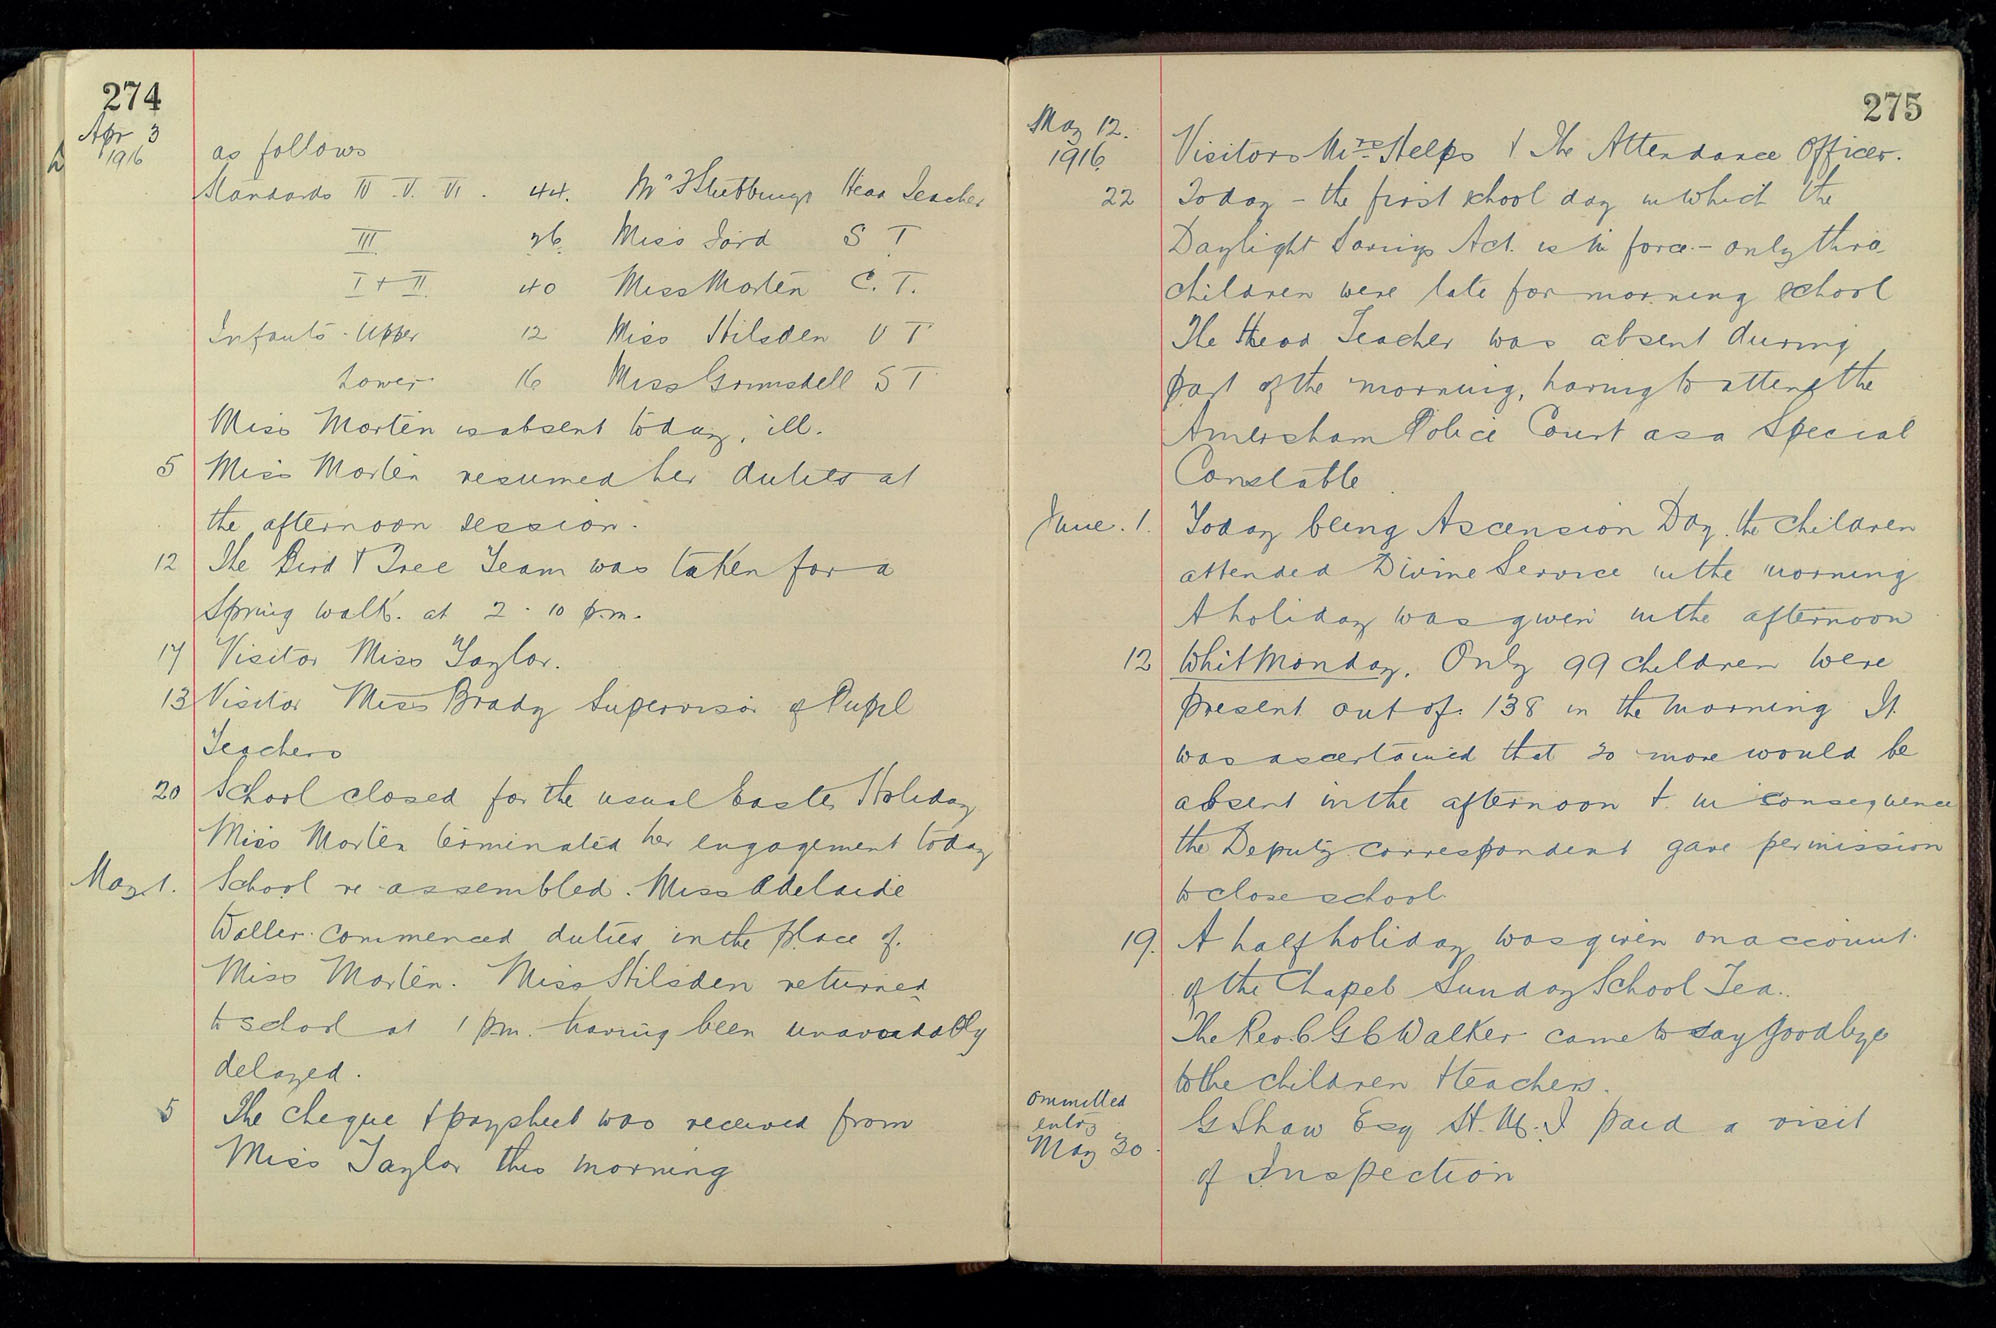 274
Apr 3
1916
as follows
Standards IV. V. VI. 44. Mr Stebbings Head Teacher
III 26. Miss Ford S T
I + II 40 Miss Morten C. T.
Infants. Upper 12 Miss Hilsden U T
Lower 16 Miss Grimsdell S T
Miss Morten is absent today, ill.
5 Miss Morten resumed her duties at
the afternoon session.
12 The Bird & Tree Team was taken for a
Spring walk. at 2.10 p.m.
17 Visitor Miss Taylor.
13 Visitor Miss Brady Supervisor of Pupil
Teachers
20 School closed for the usual Easter Holiday
Miss Morten terminated her engagement today
May 1. School re-assembled. Miss Adelaide
Waller commenced duties in the place of
Miss Morten. Miss Hilsden returned
to school at 1 p.m. having been unavoidably
delayed.
5 The cheque & paysheet was received from
Miss Taylor this morning
275
May 12.
1916.
Visitors Mrs Helps & The Attendance Officer.
22 Today – the first school day in which the
Daylight Savings Act. is in force – only three
children were late for morning school
The Head Teacher was absent during
part of the morning, having to attend the
Amersham Police Court as a Special
Constable
June. 1. Today being Ascension Day. the children
attended Divine Service in the morning
A holiday was given in the afternoon
12 Whit Monday. Only 99 children were
present out of 138 in the morning It
was ascertained that 20 more would be
absent in the afternoon & in consequence
the Deputy correspondent gave permission
to close school.
19. A half holiday was given on account
of the Chapel Sunday School Tea.
The Rev. C G C Walker came to say Goodbye
to the children & teachers.
ommitted
entry
May 30. G Shaw Esq H.M.I paid a visit
of Inspection